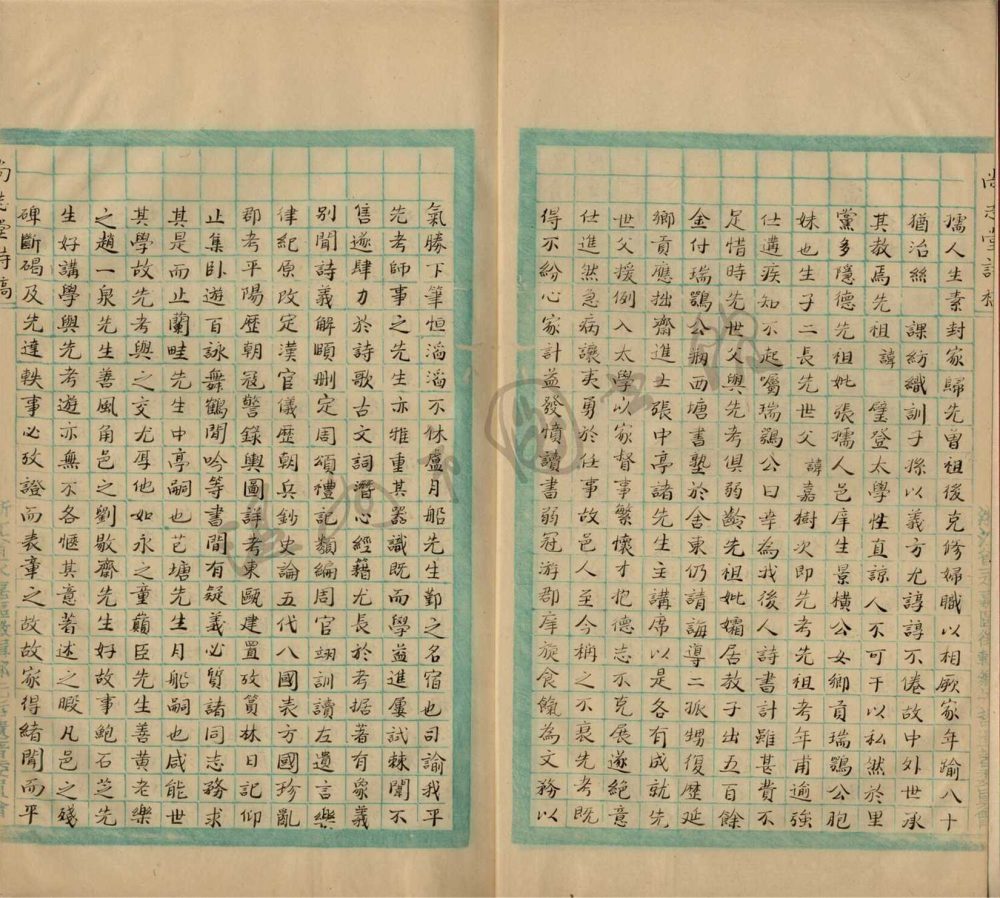 孺人生素封家歸先曾祖後克修婦職以相厥家年踰八十
猶治絲 課紡織訓子孫以義方尤諄諄不倦故中外世承
其教馬先祖 諱 璧登太學性直諒人不可干以私然於里
黨多隱德先祖妣張孺人邑庠生景橫公女鄉貢瑞鶚公胞
妹也生子二長先世父 諱嘉樹次即先考先祖考年甫逾強
仕遘疾知不起囑瑞鶚公曰幸為我後人詩書計雖甚費不
足惜時先世父與先考俱弱齡先祖妣孀居教子出五百餘
金付瑞鶚公痾西塘書塾於舍東仍請誨導二孤甥復歷延
鄉貢應拙齋進士張中亭諸先生主講席以是各有成就先
世父援例入太學以家督事繁懷才抱德志不克展遂絕意
仕進然急病讓夷勇於任事故邑人至今稱之不衰先考既
得不紛心家計益發憤讀書弱冠游郡庠旋食餼為文務以
氣勝下筆恒滔滔不休盧月船先生鄞之名宿也司諭我平
先考師事之先生亦雅重其器識既而學益進屢試棘闈不
售遂肆力於詩歌古文詞潛心經籍尤長於考据著有象義
別聞詩義解頤刪定周頌禮記類編周官翊訓讀左遺言樂
律紀原改定漢官儀歷朝兵鈔史論五代八國表方國珍亂
郡考平陽歷朝冠警錄輿圖詳考東甌建置攷算林日記仰
止集臥遊百詠舞鶴閒吟等書間有疑義必質諸同志務求
其是而止蘭畦先生中亭嗣也芑塘先生月船嗣也咸能世
其學故先考與之交尤厚他如永之童蘅臣先生善黃老樂
之趙一泉先生善風角邑之劉敬齋先生好故事鮑石芝先
生好講學與先考遊亦無不各愜其意著述之暇凡邑之殘
碑斷碣及先達軼事必攷證而表章之故故家得緒聞而平
尚志堂詩稿